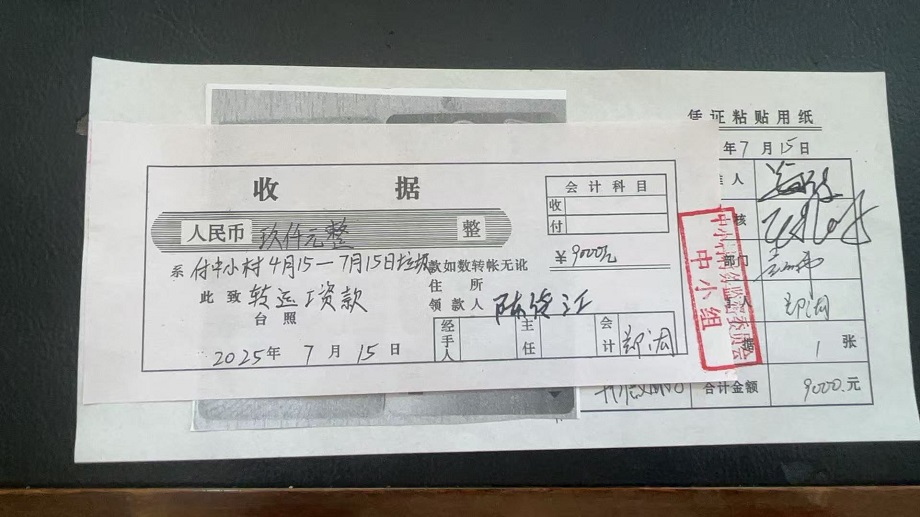 凭证粘贴用纸
年7月15日
收据
会计科目
收
付
人民币 玖仟元整 整
¥9000元
系付中小村4月15—7月15日垃圾 款如数转帐无讹
此致 转运工资款 住所
台照 领款人
2025年7月15日
经手人 主任 会计
人
核
部门
人
1 张
合计金额 9000.元
中小组